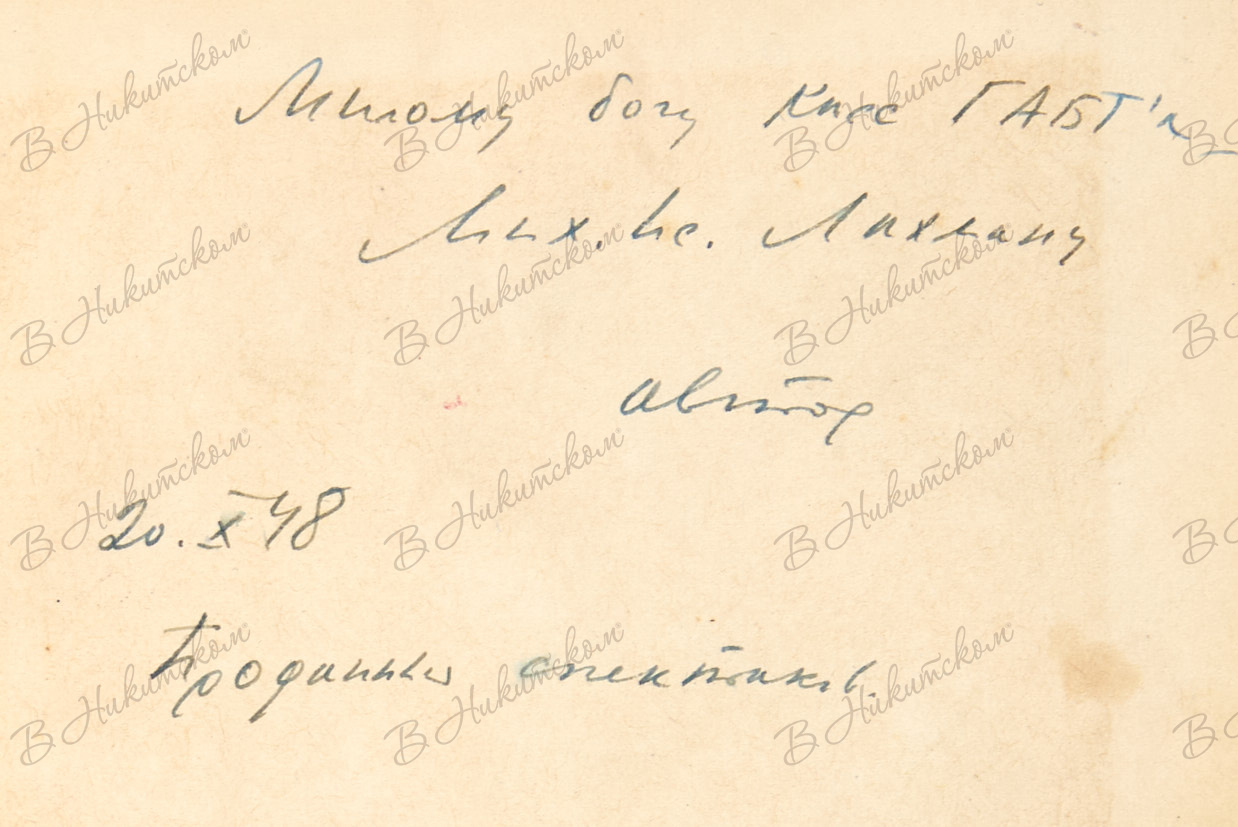 Милому богу касс ГАБТ'а
Мих. Ис. Лахману
автор
20.X 48
Проданный спектакль.
В Никитском